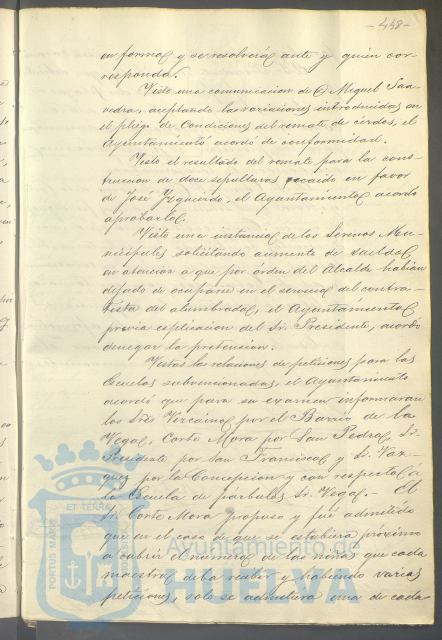 - 448 -
en forma y se resolverá ante y quien cor-
responda.
Visto una comunicacion de D Miguel Saa-
vedra, aceptando las variaciones introducidas en
el pliego de Condiciones del remate de cerdos, el
Ayuntamiento acordo de conformidad.
Visto el resultado del remate para la cons-
truccion de doce sepulturas recaido en favor
de José Izquierdo, el Ayuntamiento acordo
aprobarlo.
Visto una instancia de los Serenos Mu-
nicipales solicitando aumento de sueldo
en atencion a que por órden del Alcalde habian
dejado de ocuparse en el servicio del contra-
tista del alumbrado, el Ayuntamiento
previa esplicacion del Sr. Presidente, acordó
denegar la pretencion.
Vistas las relaciones de peticiones para las
Escuelas subvencionadas, el Ayuntamiento
acordó que para su examen informaran
los Sres Vizcaino por el Barrio de la
Vega, Corte Mora por San Pedro, Sr.
Presidente por San Francisco y Sr. Vaz-
quez por la Concepcion y con respecto á
la Escuela de párbulos Sr. Vega. - El
Sr. Corte Mora propuso y fué admitido
que en el caso de que se estubiera próximo
a cubrir el número de los niños que cada
maestro deba recibir y habiendo varias
peticiones, solo se admitiera una de cada
PORTUS MARIS
ET TERRAE
Ayuntamiento de
HUELVA